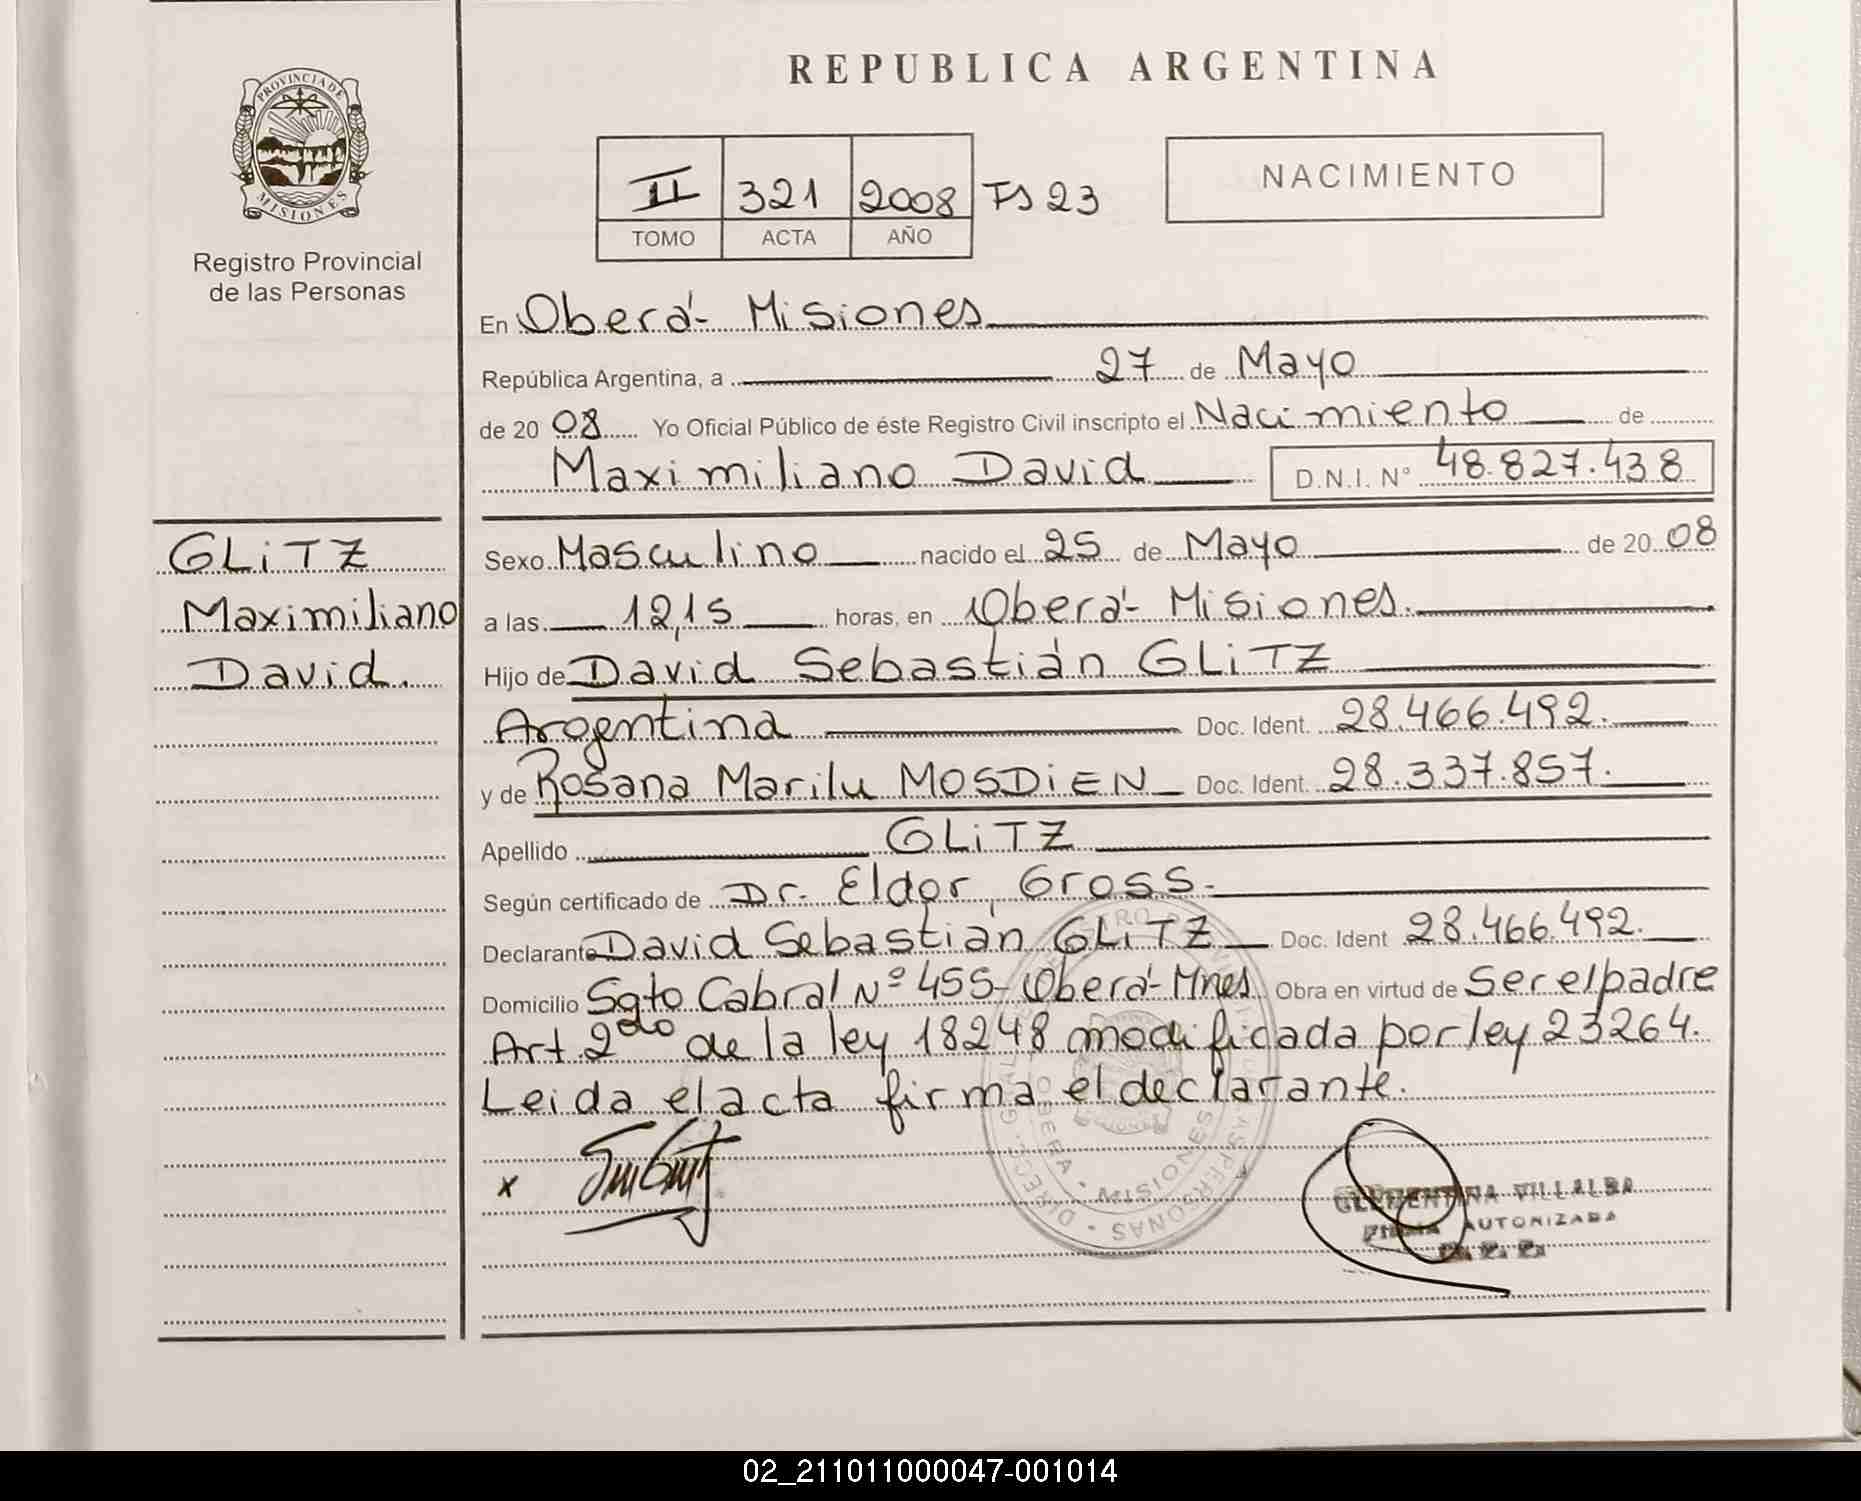 REPUBLICA ARGENTINA
PROVINCIA DE
MISIONES
Registro Provincial
de las Personas
II 321 2008 Fs 23
TOMO ACTA AÑO
NACIMIENTO
En Oberá - Misiones
República Argentina, a 27 de Mayo
de 20 08 Yo Oficial Público de éste Registro Civil inscripto el Nacimiento de
Maximiliano David D.N.I. N° 48.827.438
GLiTZ
Maximiliano
David.
Sexo Masculino nacido el 25 de Mayo de 20 08
a las 12,15 horas, en Oberá - Misiones.
Hijo de David Sebastián GLiTZ
Argentina Doc. Ident. 28.466.492.
y de Rosana Marilu MOSDiEN Doc. Ident. 28.337.857.
Apellido GLiTZ
Según certificado de Dr. Eldor Gross.
Declarante David Sebastián GLiTZ Doc. Ident 28.466.492.
Domicilio Sgto Cabral Nº 455 - Oberá - Mnes Obra en virtud de Ser el padre
Art 2do de la ley 18248 modificada por ley 23264.
Leida el acta firma el declarante.
x
OBERA - MISIONES
PERSONAS
CLEMENTINA VILLALBA
FIRMA AUTORIZADA
02_211011000047-001014